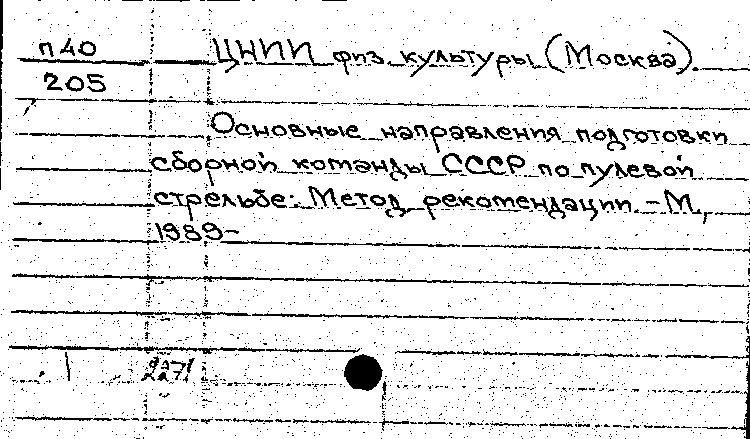 п40 ЦНИИ физ. культуры (Москва).
205
Основные направления подготовки
сборной команды СССР по пулевой
стрельбе: Метод. рекомендации. - М.,
1989-